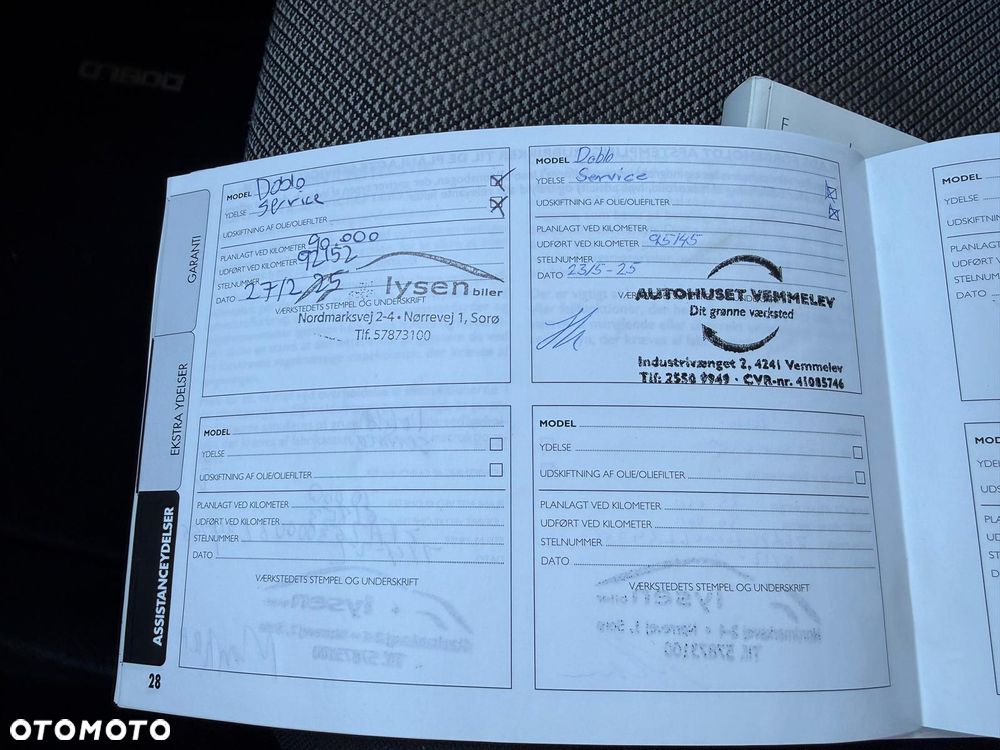 DOBLO
F
GARANTI
EKSTRA YDELSER
ASSISTANCEYDELSER
28
MODEL Doblo
YDELSE Service
UDSKIFTNING AF OLIE/OLIEFILTER
PLANLAGT VED KILOMETER 90.000
UDFØRT VED KILOMETER 92152
STELNUMMER
DATO 27/2 25
VÆRKSTEDETS STEMPEL OG UNDERSKRIFT
lysen biler
Nordmarksvej 2-4 • Nørrevej 1, Sorø
Tlf. 57873100
MODEL Doblo
YDELSE Service
UDSKIFTNING AF OLIE/OLIEFILTER
PLANLAGT VED KILOMETER
UDFØRT VED KILOMETER 95145
STELNUMMER
DATO 23/5-25
AUTOHUSET VEMMELEV
Dit grønne værksted
Industrivænget 2, 4241 Vemmelev
Tlf: 2550 9949 • CVR-nr. 41085746
MODEL
YDELSE
UDSKIFTNING AF OLIE/OLIEFILTER
PLANLAGT VED KILOMETER
UDFØRT VED KILOMETER
STELNUMMER
DATO
VÆRKSTEDETS STEMPEL OG UNDERSKRIFT
MODEL
YDELSE
UDSKIFTNING AF OLIE/OLIEFILTER
PLANLAGT VED KILOMETER
UDFØRT VED KILOMETER
STELNUMMER
DATO
VÆRKSTEDETS STEMPEL OG UNDERSKRIFT
MODEL
YDELSE
UDSKIFTNIN
PLANLAGT
UDFØRT V
STELNUMM
DATO
MOD
YDEL
UDS
PLA
UD
STE
D
OTOMOTO